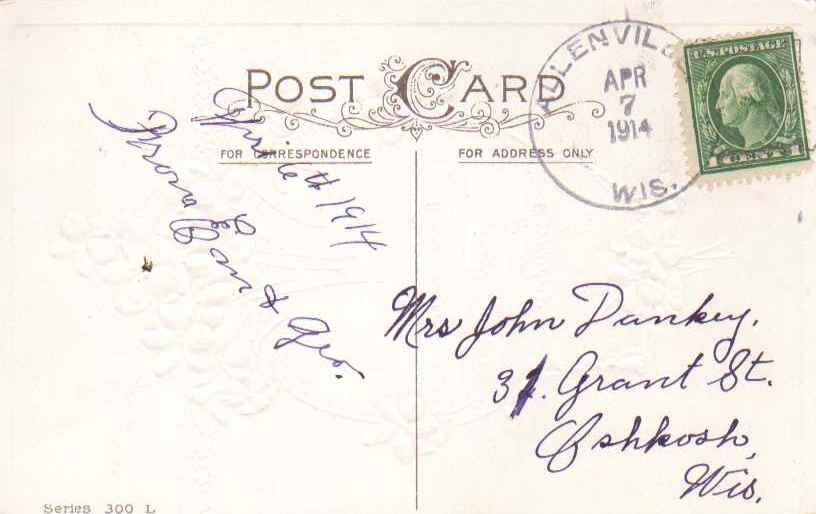 POST CARD
FOR CORRESPONDENCE
FOR ADDRESS ONLY
ALLENVILLE
APR
7
1914
WIS.
U.S. POSTAGE
April 6th 1914
From E. Car & Geo.
Mrs John Dankey.
31. Grant St.
Oshkosh,
Wis.
Series 300 L